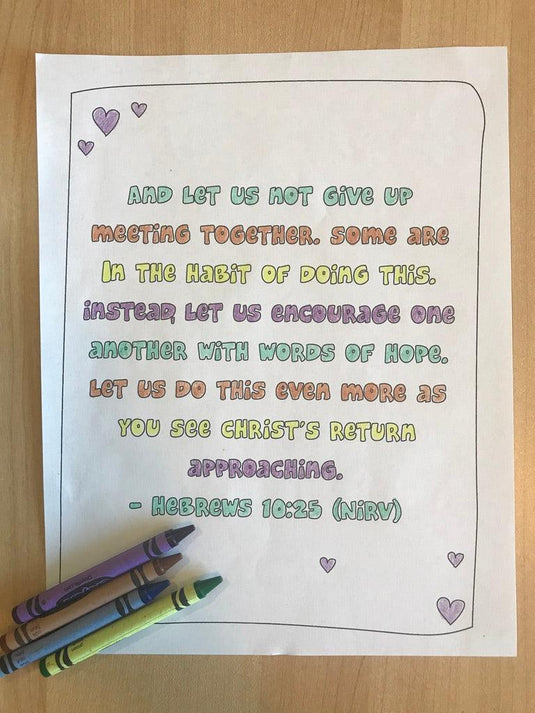 AND LET US NOT GIVE UP
MEETING TOGETHER. SOME ARE
IN THE HABIT OF DOING THIS.
INSTEAD, LET US ENCOURAGE ONE
ANOTHER WITH WORDS OF HOPE.
LET US DO THIS EVEN MORE AS
YOU SEE CHRIST'S RETURN
APPROACHING.
- HEBREWS 10:25 (NIRV)